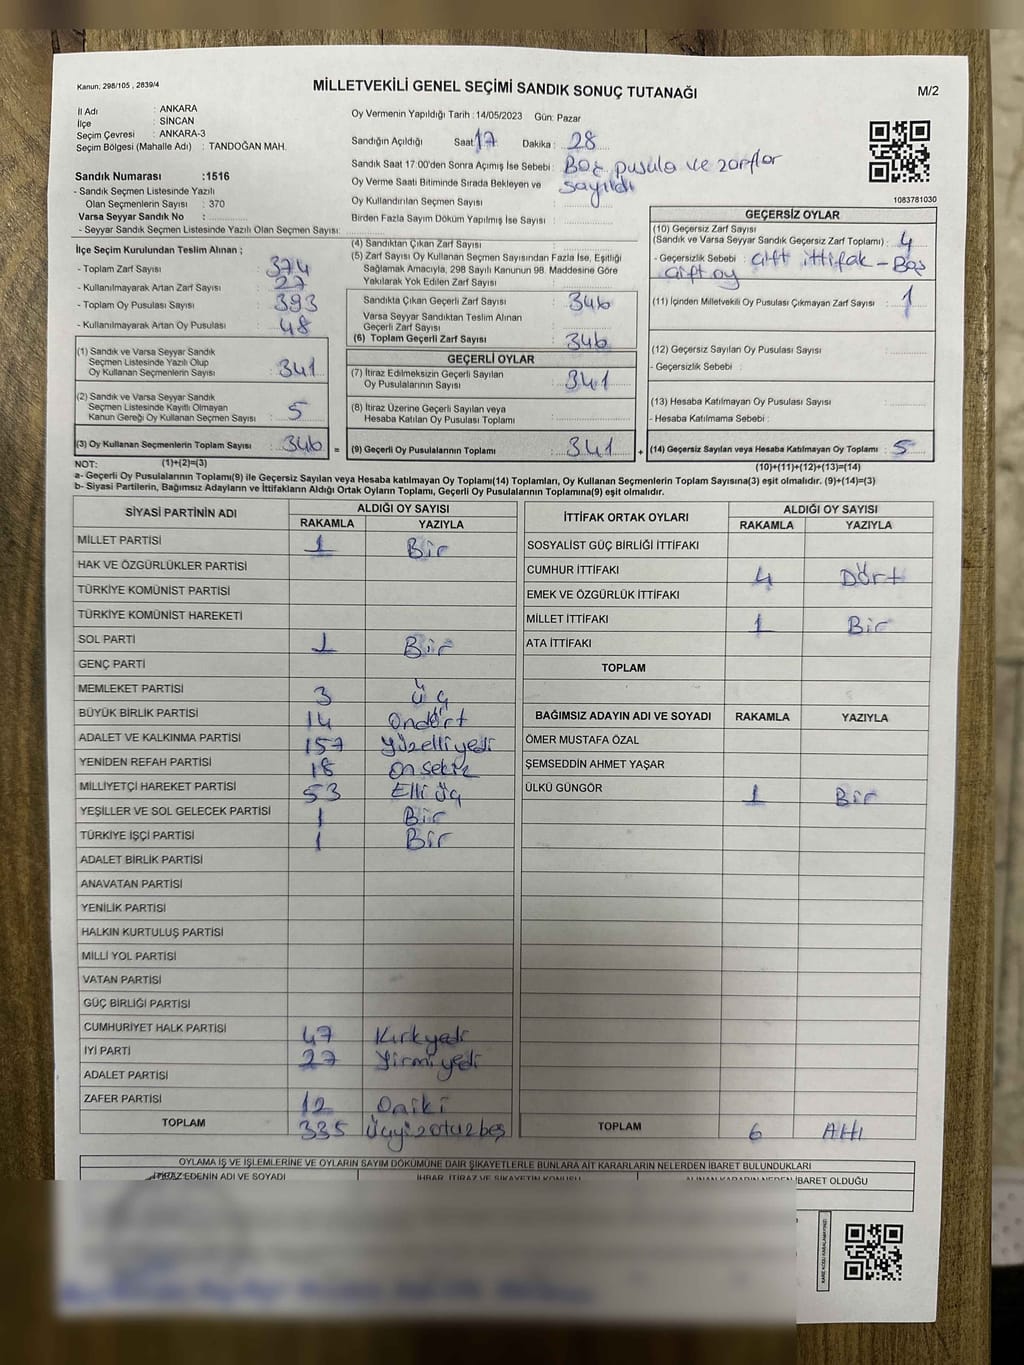 Kanun; 298/105 , 2839/4
MİLLETVEKİLİ GENEL SEÇİMİ SANDIK SONUÇ TUTANAĞI
M/2
İl Adı : ANKARA
İlçe : SİNCAN
Seçim Çevresi : ANKARA-3
Seçim Bölgesi (Mahalle Adı) : TANDOĞAN MAH.
Sandık Numarası :1516
- Sandık Seçmen Listesinde Yazılı
Olan Seçmenlerin Sayısı : 370
Varsa Seyyar Sandık No :
- Seyyar Sandık Seçmen Listesinde Yazılı Olan Seçmen Sayısı:
Oy Vermenin Yapıldığı Tarih : 14/05/2023 Gün: Pazar
Sandığın Açıldığı Saat: 17 Dakika : 28
Sandık Saat 17:00'den Sonra Açımış İse Sebebi: Boş pusula ve zarflar
Oy Verme Saati Bitiminde Sırada Bekleyen ve sayıldı
Oy Kullandırılan Seçmen Sayısı :
Birden Fazla Sayım Döküm Yapılmış İse Sayısı :
1083781030
İlçe Seçim Kurulundan Teslim Alınan ;
- Toplam Zarf Sayısı : 374
- Kullanılmayarak Artan Zarf Sayısı : 27
- Toplam Oy Pusulası Sayısı : 393
- Kullanılmayarak Artan Oy Pusulası : 48
(1) Sandık ve Varsa Seyyar Sandık
Seçmen Listesinde Yazılı Olup
Oy Kullanan Seçmenlerin Sayısı : 341
(2) Sandık ve Varsa Seyyar Sandık
Seçmen Listesinde Kayıtlı Olmayan
Kanun Gereği Oy Kullanan Seçmen Sayısı : 5
(3) Oy Kullanan Seçmenlerin Toplam Sayısı : 346 =
(4) Sandıktan Çıkan Zarf Sayısı :
(5) Zarf Sayısı Oy Kullanan Seçmen Sayısından Fazla İse, Eşitliği
Sağlamak Amacıyla, 298 Sayılı Kanunun 98. Maddesine Göre
Yakılarak Yok Edilen Zarf Sayısı :
Sandıkta Çıkan Geçerli Zarf Sayısı : 346
Varsa Seyyar Sandıktan Teslim Alınan
Geçerli Zarf Sayısı :
(6) Toplam Geçerli Zarf Sayısı : 346
GEÇERLİ OYLAR
(7) İtiraz Edilmeksizin Geçerli Sayılan
Oy Pusulalarının Sayısı : 341
(8) İtiraz Üzerine Geçerli Sayılan veya
Hesaba Katılan Oy Pusulaları Toplamı :
(9) Geçerli Oy Pusulalarının Toplamı : 341 +
GEÇERSİZ OYLAR
(10) Geçersiz Zarf Sayısı
(Sandık ve Varsa Seyyar Sandık Geçersiz Zarf Toplamı) : 4
- Geçersizlik Sebebi : Çift ittifak - Boş
Çift oy
(11) İçinden Milletvekili Oy Pusulası Çıkmayan Zarf Sayısı : 1
(12) Geçersiz Sayılan Oy Pusulası Sayısı :
- Geçersizlik Sebebi :
(13) Hesaba Katılmayan Oy Pusulası Sayısı :
- Hesaba Katılmama Sebebi :
(14) Geçersiz Sayılan veya Hesaba Katılmayan Oy Toplamı : 5
NOT: (1)+(2)=(3)
(10)+(11)+(12)+(13)=(14)
a- Geçerli Oy Pusulalarının Toplamı(9) ile Geçersiz Sayılan veya Hesaba katılmayan Oy Toplamı(14) Toplamları, Oy Kullanan Seçmenlerin Toplam Sayısına(3) eşit olmalıdır. (9)+(14)=(3)
b- Siyasi Partilerin, Bağımsız Adayların ve İttifakların Aldığı Ortak Oyların Toplamı, Geçerli Oy Pusulalarının Toplamına(9) eşit olmalıdır.
SİYASİ PARTİNİN ADI ALDIĞI OY SAYISI
RAKAMLA YAZIYLA
MİLLET PARTİSİ 1 Bir
HAK VE ÖZGÜRLÜKLER PARTİSİ
TÜRKİYE KOMÜNİST PARTİSİ
TÜRKİYE KOMÜNİST HAREKETİ
SOL PARTİ 1 Bir
GENÇ PARTİ
MEMLEKET PARTİSİ 3 Üç
BÜYÜK BİRLİK PARTİSİ 14 Ondört
ADALET VE KALKINMA PARTİSİ 157 Yüzelliyedi
YENİDEN REFAH PARTİSİ 18 Onsekiz
MİLLİYETÇİ HAREKET PARTİSİ 53 Elli üç
YEŞİLLER VE SOL GELECEK PARTİSİ 1 Bir
TÜRKİYE İŞÇİ PARTİSİ 1 Bir
ADALET BİRLİK PARTİSİ
ANAVATAN PARTİSİ
YENİLİK PARTİSİ
HALKIN KURTULUŞ PARTİSİ
MİLLİ YOL PARTİSİ
VATAN PARTİSİ
GÜÇ BİRLİĞİ PARTİSİ
CUMHURİYET HALK PARTİSİ 47 Kırkyedi
İYİ PARTİ 27 Yirmiyedi
ADALET PARTİSİ
ZAFER PARTİSİ 12 Oniki
TOPLAM 335 Üçyüzotuzbeş
İTTİFAK ORTAK OYLARI ALDIĞI OY SAYISI
RAKAMLA YAZIYLA
SOSYALİST GÜÇ BİRLİĞİ İTTİFAKI
CUMHUR İTTİFAKI 4 Dört
EMEK VE ÖZGÜRLÜK İTTİFAKI
MİLLET İTTİFAKI 1 Bir
ATA İTTİFAKI
TOPLAM
BAĞIMSIZ ADAYIN ADI VE SOYADI RAKAMLA YAZIYLA
ÖMER MUSTAFA ÖZAL
ŞEMSEDDİN AHMET YAŞAR
ÜLKÜ GÜNGÖR 1 Bir
TOPLAM 6 Altı
OYLAMA İŞ VE İŞLEMLERİNE VE OYLARIN SAYIM DÖKÜMÜNE DAİR ŞİKAYETLERLE BUNLARA AİT KARARLARIN NELERDEN İBARET BULUNDUKLARI
İTİRAZ EDENİN ADI VE SOYADI
İHBAR, İTİRAZ VE ŞİKAYETİN KONUSU
ALINAN KARARIN NEDEN İBARET OLDUĞU